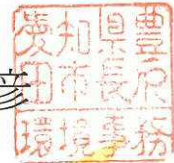 彦
愛知県豊
田市長
環境事務